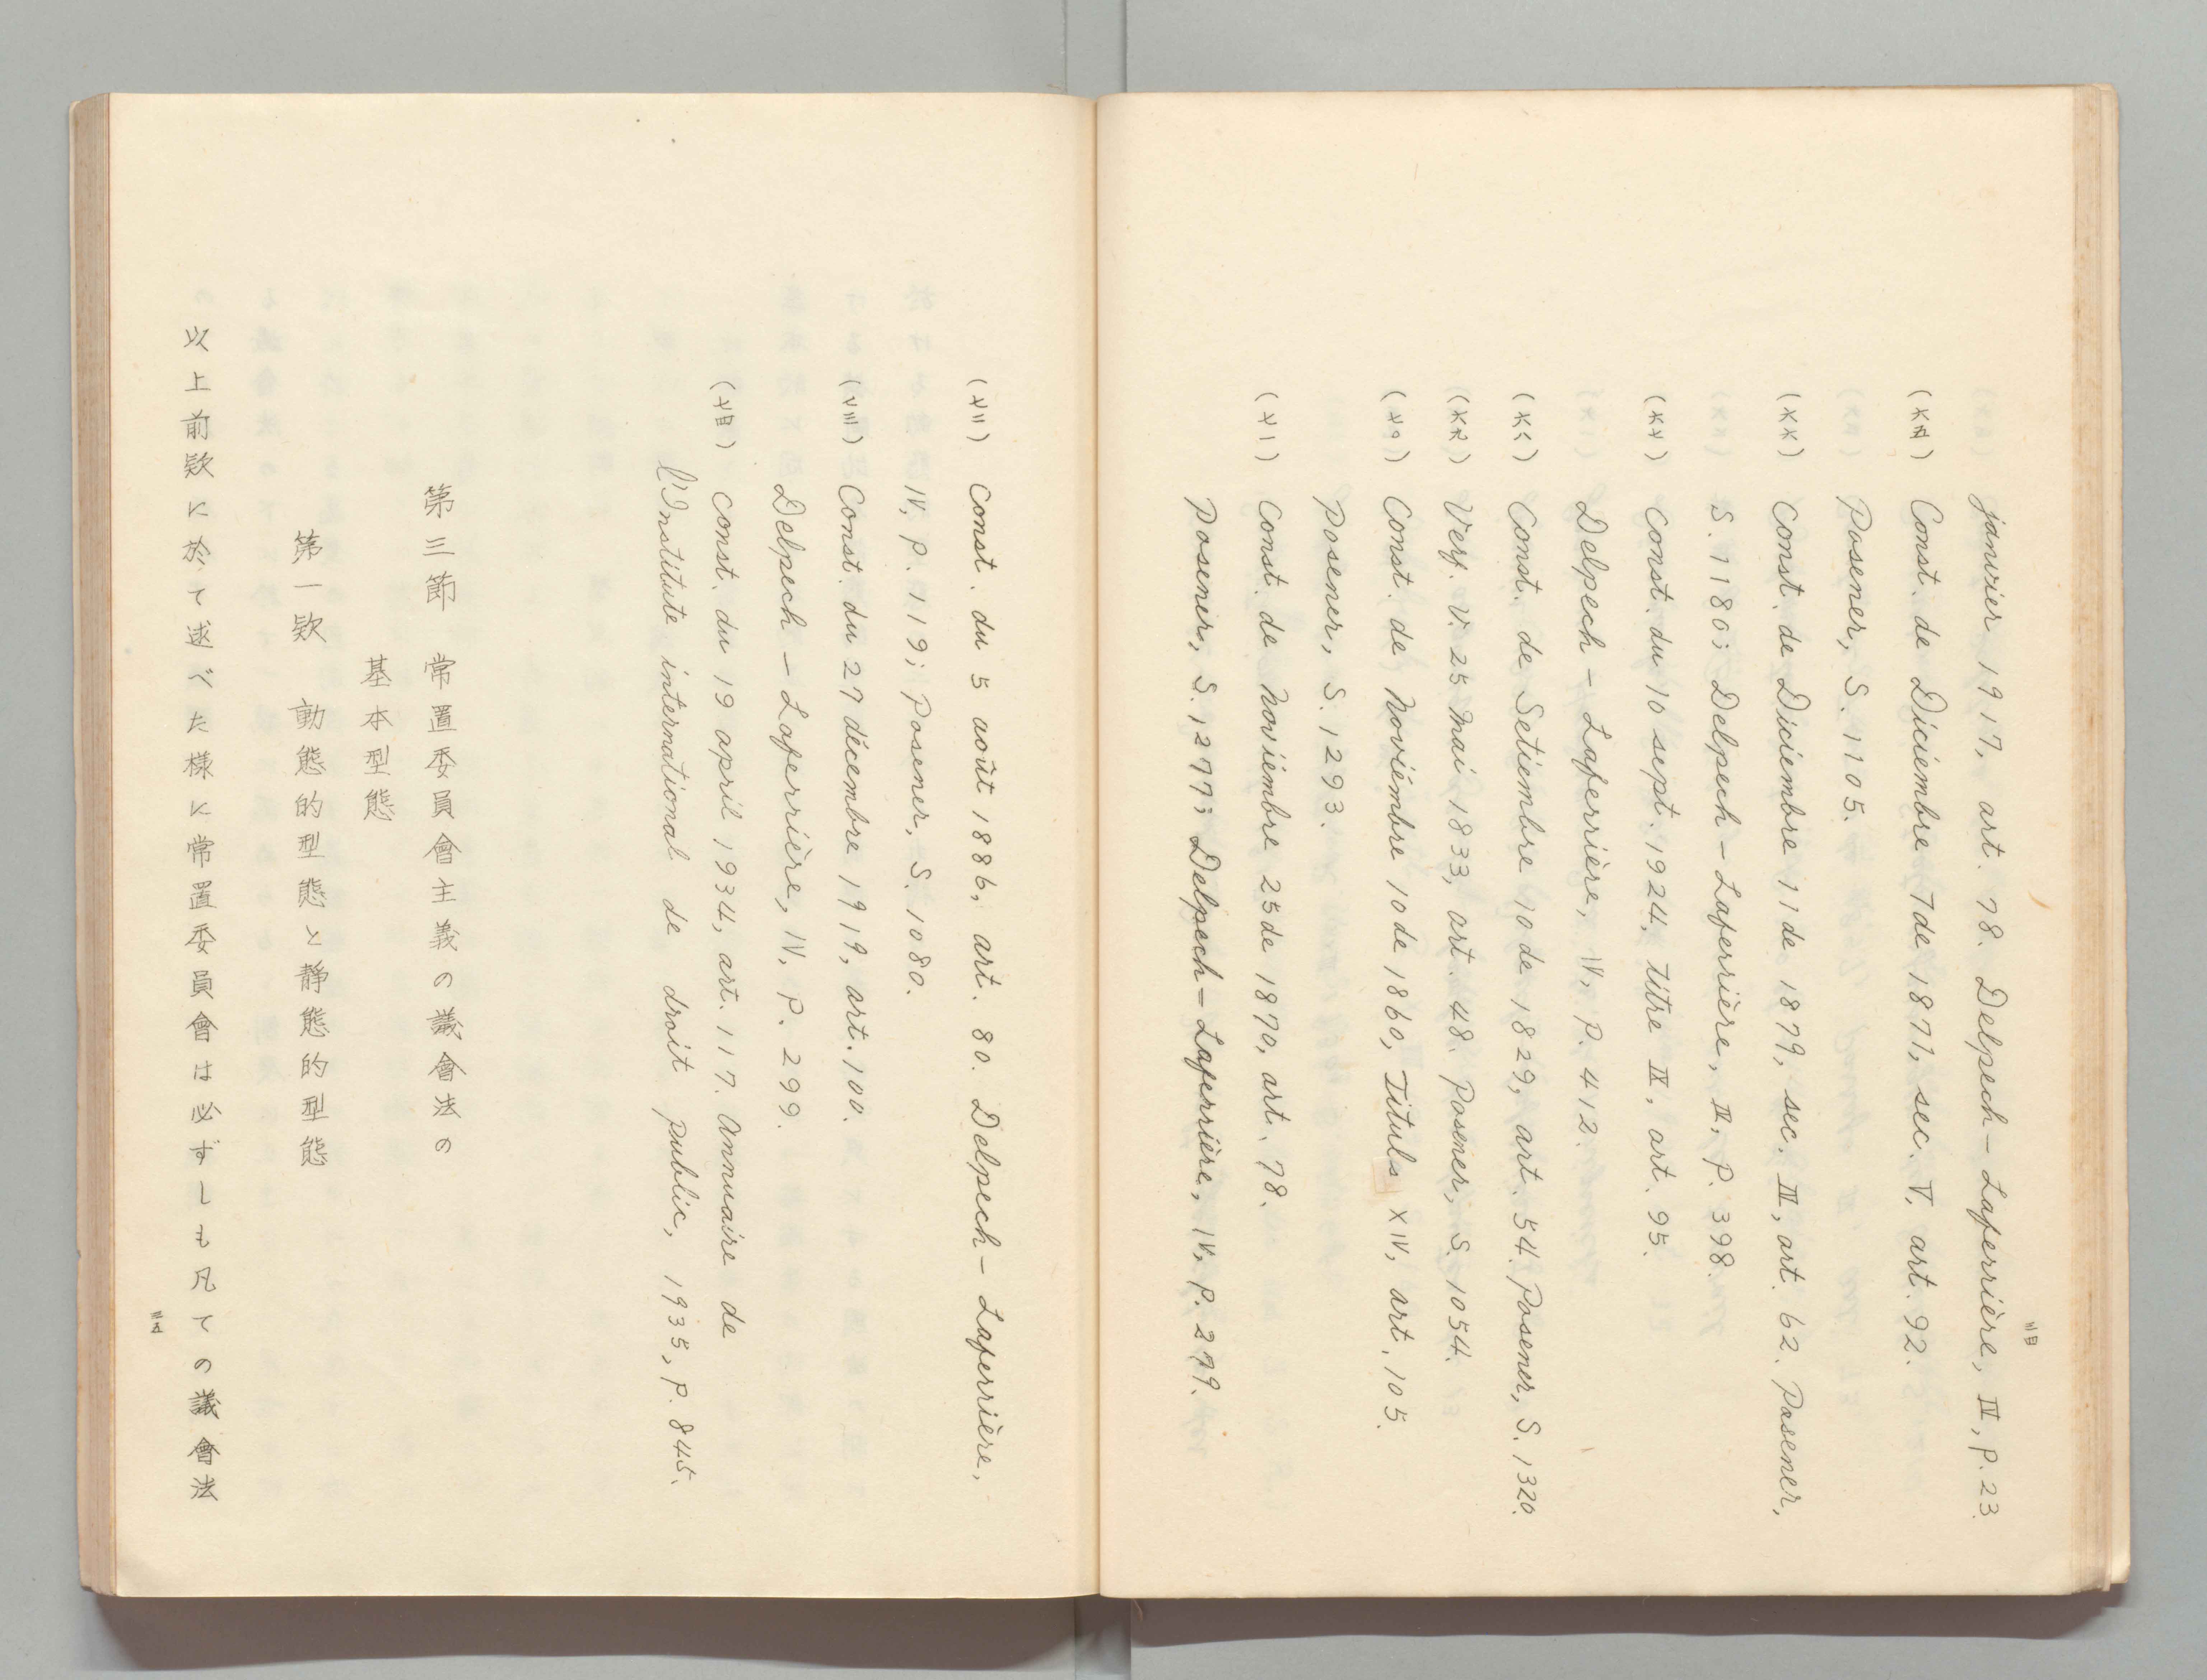 三四
janvier 1917, art. 78. Delpech – Laferrière, IV, P. 23.
(六五) Const. de Diciembre 7 de 1871, sec. V. art. 92.
Posener, S. 1105.
(六六) Const. de Diciembre 11 de 1879, sec. IV, art. 62. Posener,
S. 1180; Delpech – Laferrière, II, P. 398.
(六七) Const. du 10 sept. 1924, Titre IX, art. 95.
Delpech – Laferrière, IV, P. 412.
(六八) Const. de Setiembre 10 de 1829, art. 54. Posener, S. 1320.
(六九) Verf. V. 25 Mai 1833, art. 48. Posener, S. 1054.
(七〇) Const. de Noviémbre 10 de 1860, Titulo XIV, art. 105.
Posener, S. 1293.
(七一) Const. de Noviémbre 25 de 1870, art. 78.
Posener, S. 1277; Delpech – Laferrière, IV, P. 279.
(七二) Const. du 5 août 1886, art. 80. Delpech – Laferrière,
IV, P. 119; Posener, S. 1080.
(七三) Const. du 27 décembre 1919, art. 100.
Delpech – Laferrière, IV, P. 299.
(七四) Const. du 19 april 1934, art. 117. Annuaire de
l'Institute international de droit public, 1935, P. 845.
第三節 常置委員會主義の議會法の
基本型態
第一欵 動態的型態と静態的型態
以上前欵に於て述べた様に常置委員會は必ずしも凡ての議會法
三五